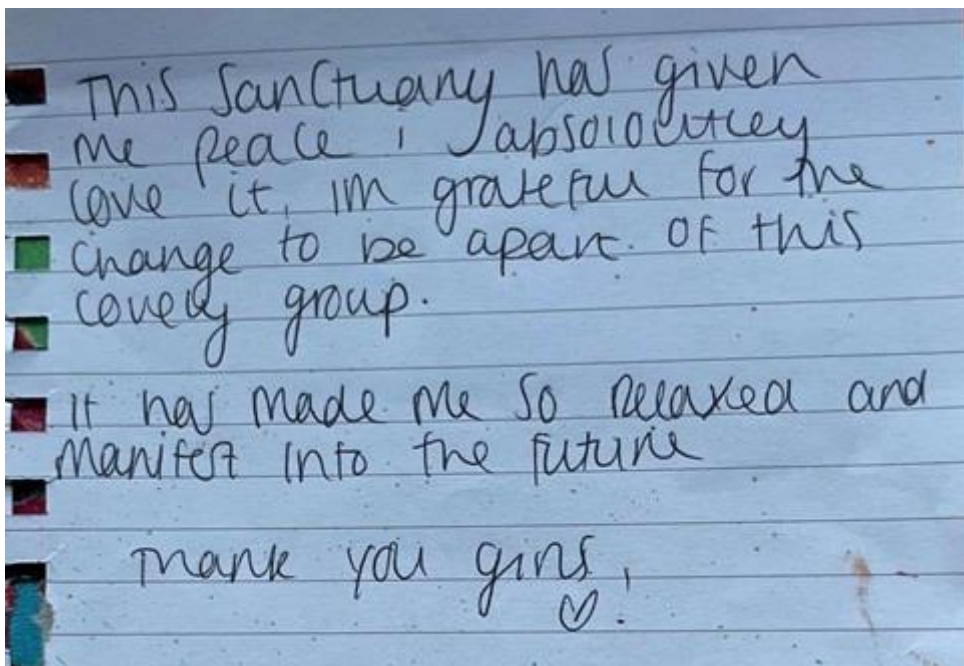 This Sanctuany has given
me peace i absoloutley
love it, im grateful for the
change to be apart of this
lovely group.
it has made me so relaxed and
manifest into the future
Thank you girls,